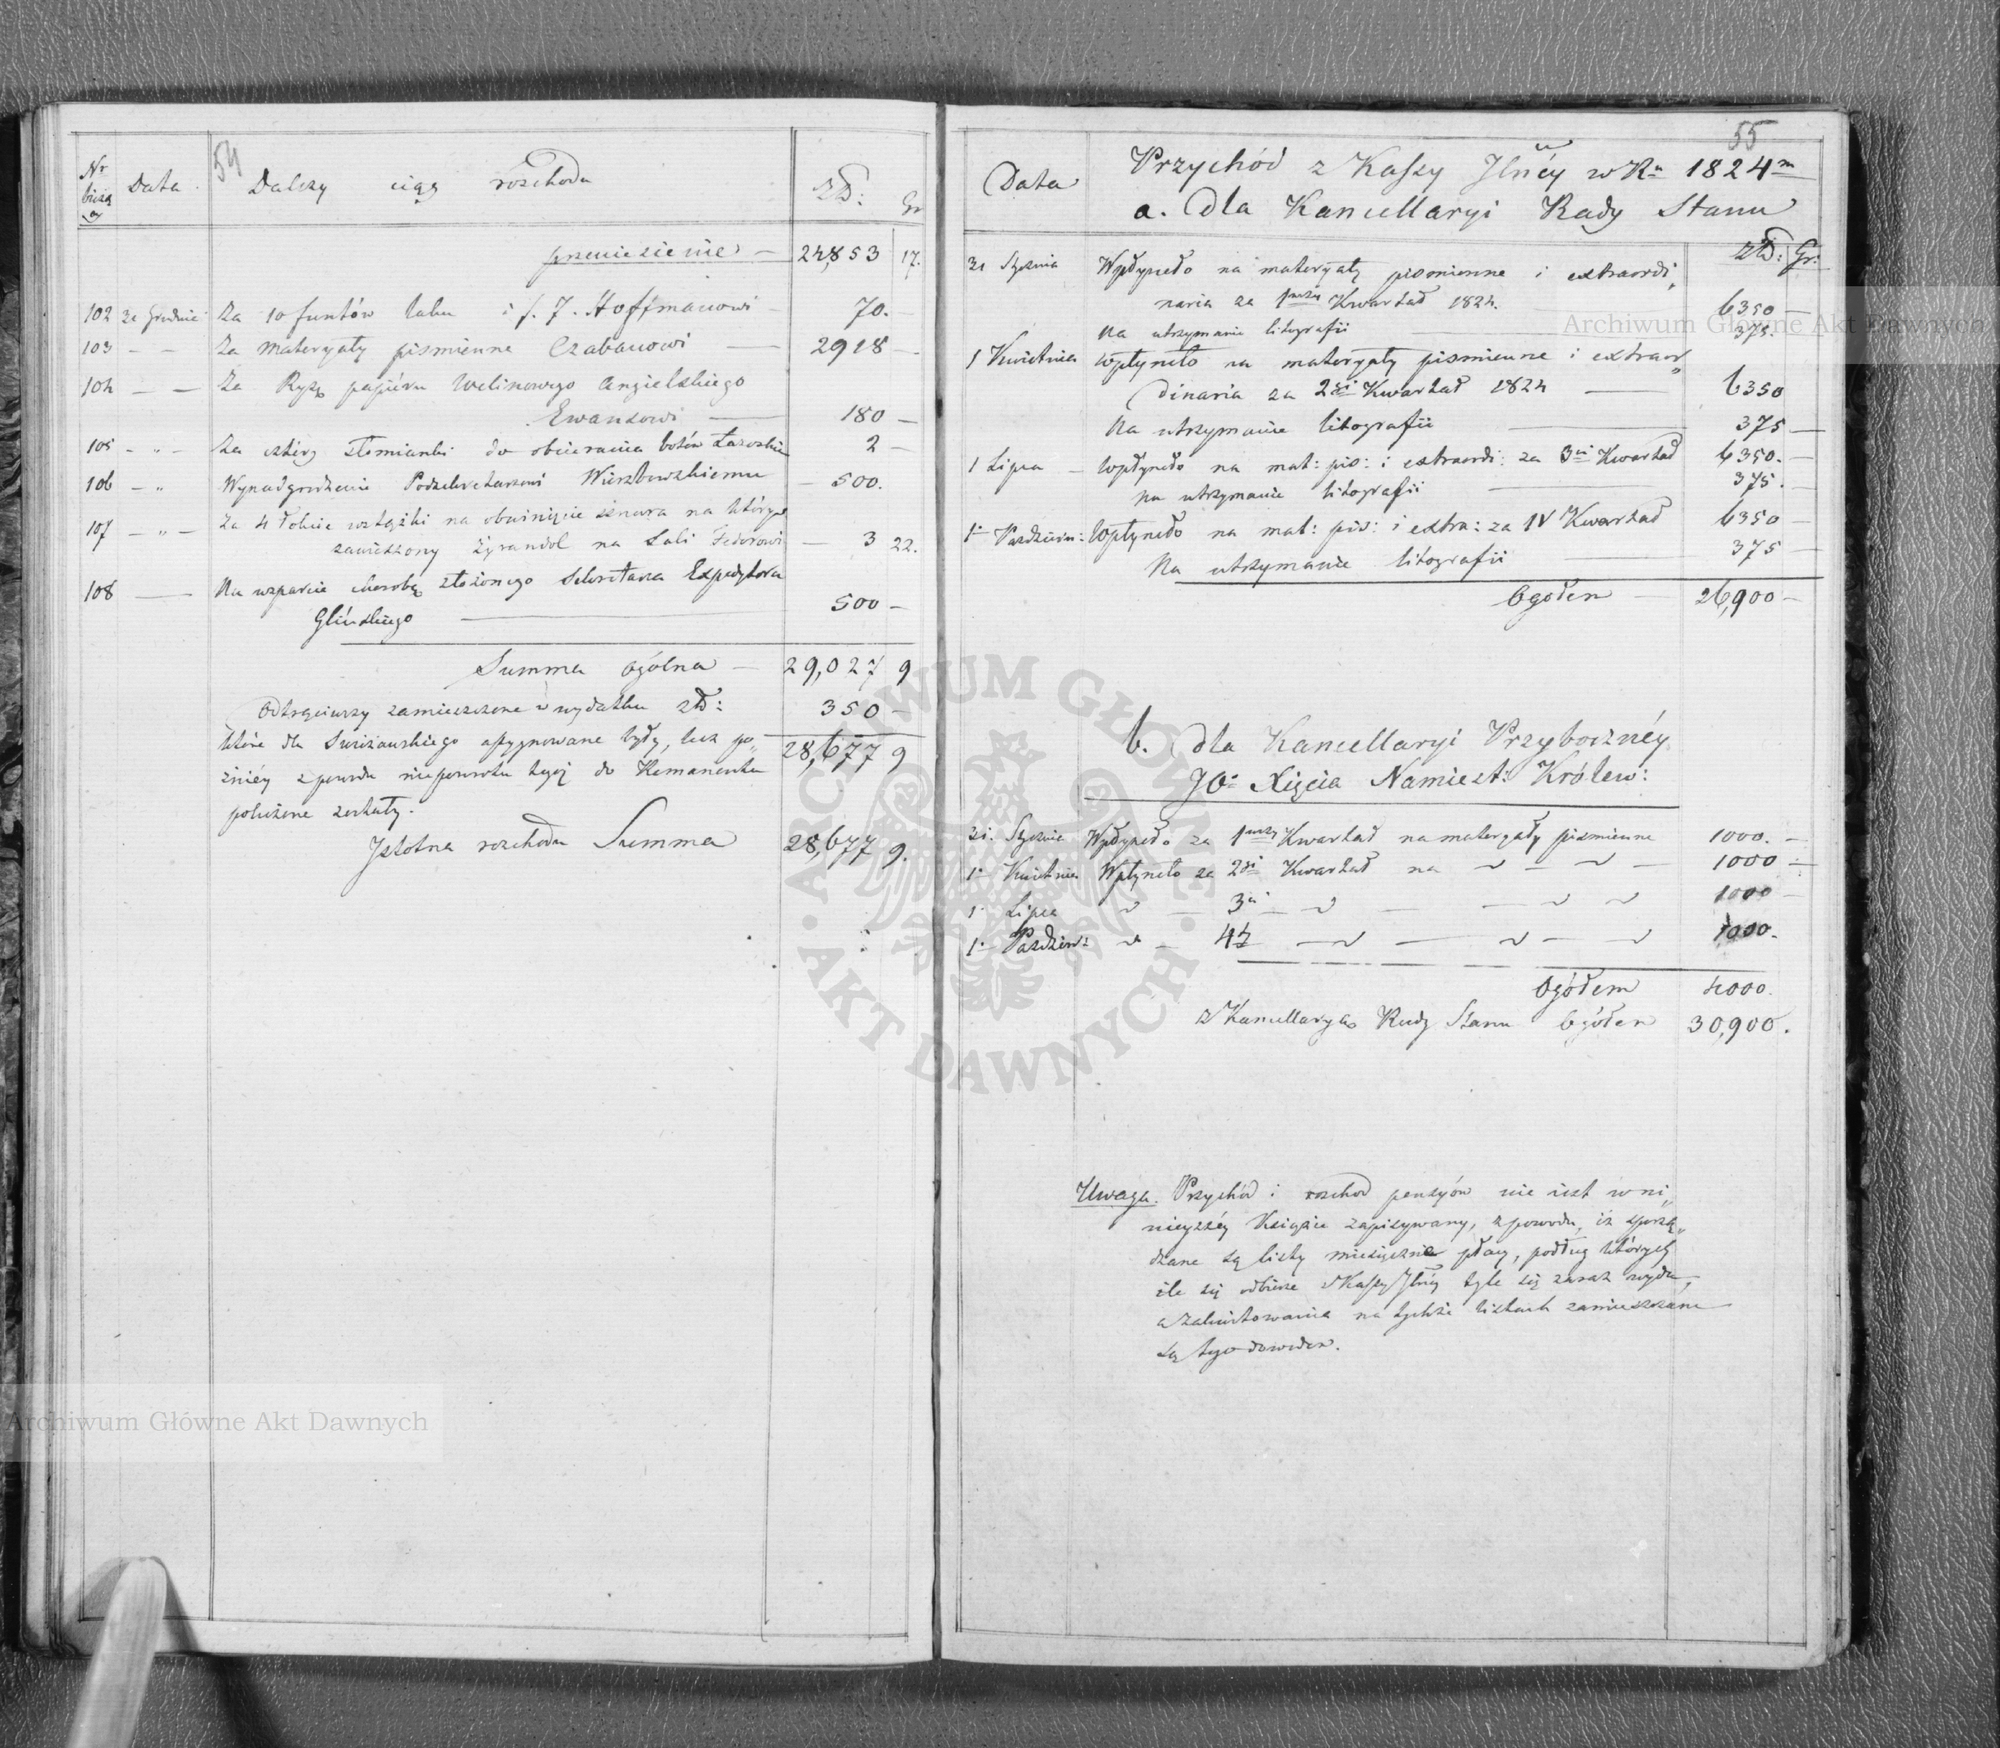 54
Nr bieżący Data Dalszy ciąg rozchodu Złł: Gr
przeniesienie — 24,853 17.
102 31 Grudnia Za 10 funtów laku i f. 7. Hoffmanowi — 70. —
103 — — Za materyały piśmienne Czabanowi — 2918 —
104 — — Za Ryzę papiéru Welinowego Angielskiego
Ewansowi — 180 —
105 — „ — Za cztery słomianki do obcierania botów 2 —
106 — „ Wynadgrodzenie Podsekretarzowi Wierzbowskiemu — 500.
107 — „ — Za 4 łokcie wstążki na obwinięcie sznura na którym
zawieszony żyrandol na Sali Fedorowi — 3 22.
108 — Na wsparcie chorobą złożonego Sekretarza Expedytora
Glińskiego — 500 —
Summa ogólna — 29,027 9
Odtrąciwszy zamieszczone w wydatku złł: 350 —
które dla assygnowane były, lecz po„ 28,677 9
źniéy z powodu niepowrotu tegoż do Remanentu
położone zostały.
Istotna rozchodu Summa 28,677 9.
55
Data Przychód z Kassy Jlnéy w Ru 1824m
a. Dla Kancellaryi Rady Stanu
Złł: Gr:
31 Stycznia Wpłynęło na materyały piśmienne i extraordi„
naria za 1wszy Kwartał 1824. 6350 —
Na utrzymanie litografii 375. —
1 Kwietnia Wpłynęło na materyały piśmienne i extraor„
dinaria za 2gi Kwartał 1824 — 6350
Na utrzymanie litografii — 375 —
1 Lipca — Wpłynęło na mat: piś: i extraordi: za 3ci Kwartał 6350. —
na utrzymanie litografii — 375. —
1 Paździer: Wpłynęło na mat: piś: i extra: za IV Kwartał 6350 —
Na utrzymanie litografii — 375 —
Ogółem — 26,900 —
b. Dla Kancellaryi Przybocznéy
JO. Xięcia Namiest: Królew:
31. Stycznia Wpłynęło za 1wszy Kwartał na materyały piśmienne 1000. —
1 Kwietnia Wpłynęło za 2gi Kwartał na ~ — ~ — 1000 —
1 Lipca ~ — 3ci — ~ — — ~ ~ 1000 —
1 Paździer: ~ — 4ty — ~ — ~ — ~ 1000.
Ogółem 4000.
z Kancellaryą Rady Stanu Ogółem 30,900.
Uwaga. Przychód i rozchod pensyów nie iest w ni„
nieyszéy Książce zapisywany, z powodu, iż sporzą„
dzane są listy miesięcznie płacy, podług których
ile się odbierze z Kassy Jlnéy tyle się zaraz wyda,
a zakwitowania na tychże listach zamieszczane
są tego dowodem.
Archiwum Główne Akt Dawnych
Archiwum Główne Akt Dawnych
ARCHIWUM GŁÓWNE • AKT DAWNYCH •